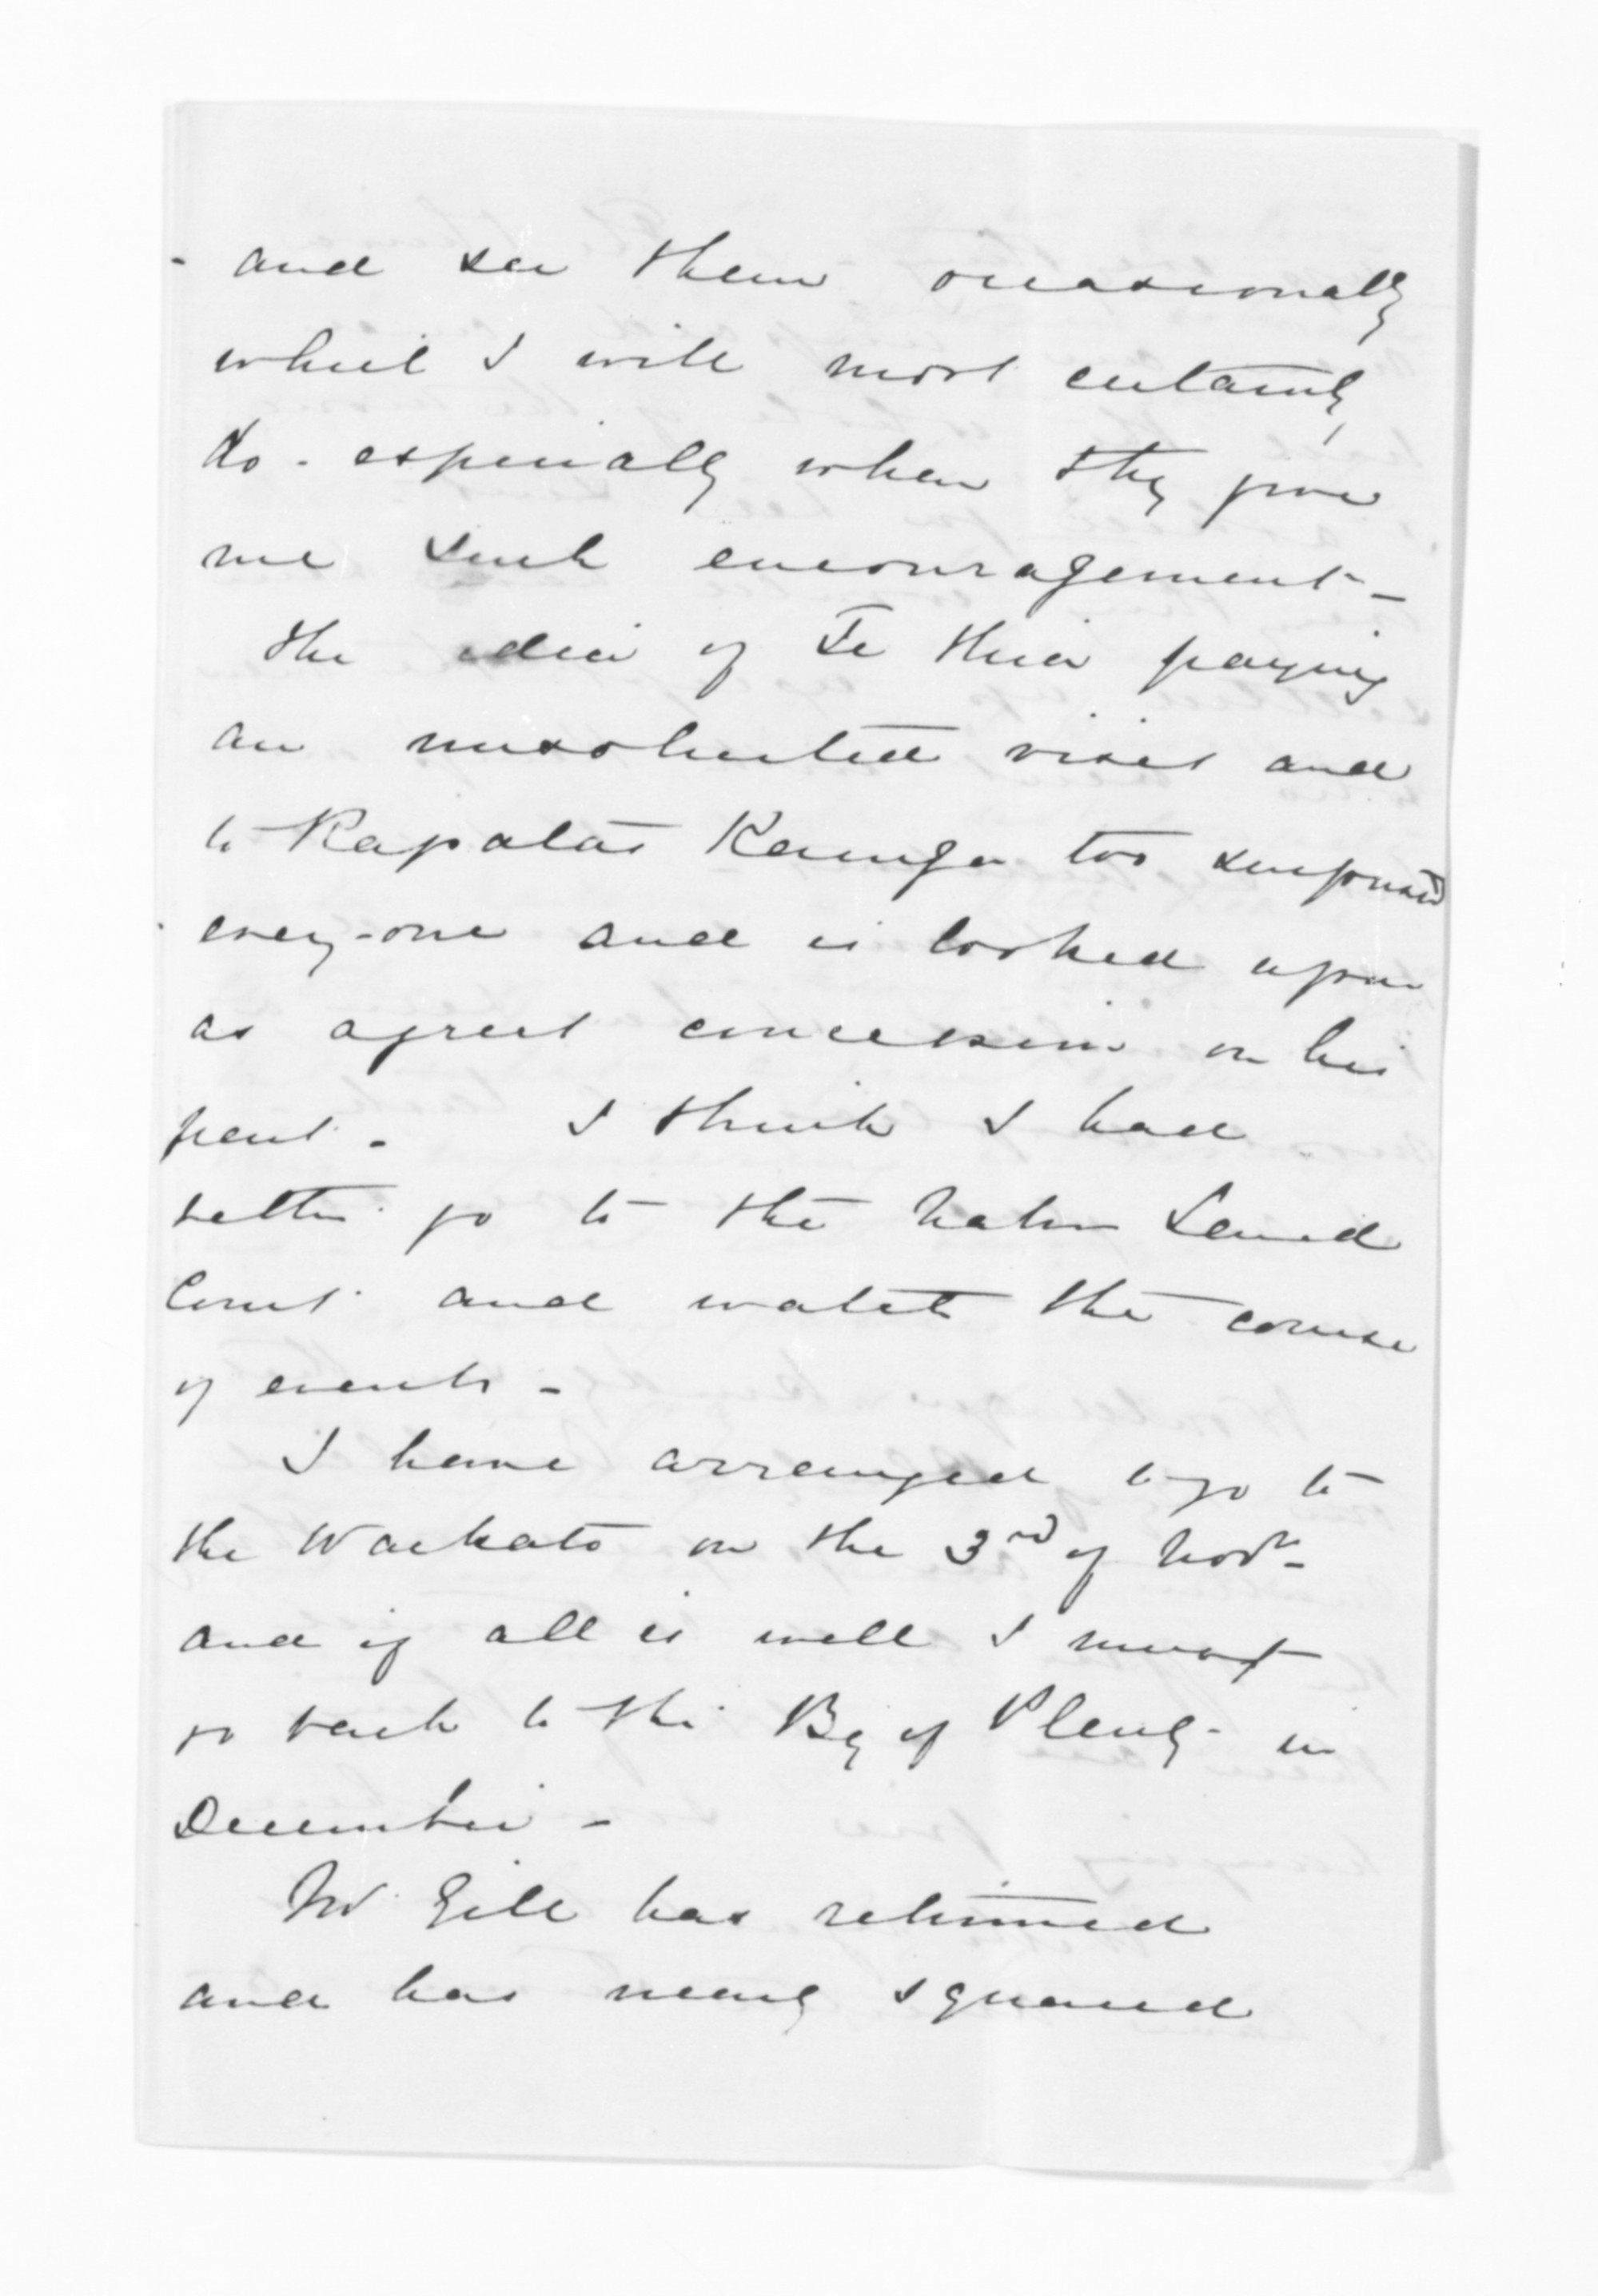 - and see them occasionally
which I will most certainly
do - especially when they give
me such encouragement -
the idea of Te Hira paying
an unsolicited visit and
to Rapata's Kainga too surprised
every-one and is looked upon
as a great concession on his
part - I think I had
better go to the Native Land
Court and watch the course
of events -
I have arranged to go to
the Waikato on the 3rd of Novr -
and if all is well I must
go back to the Bay of Plenty - in
December -
Mr Gill has returned
and has nearly squared